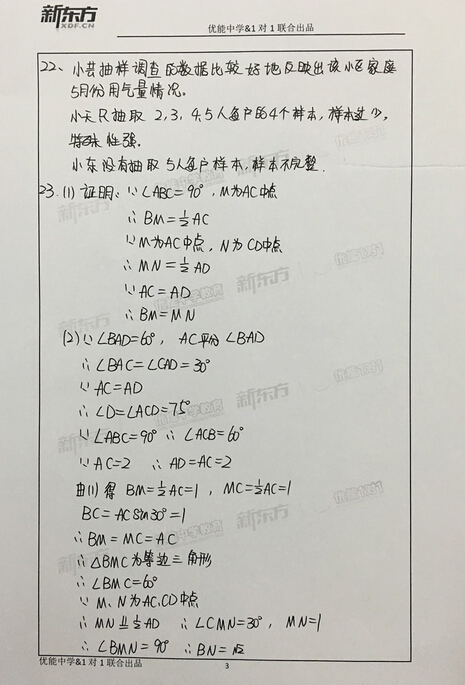 新东方
XDF.CN
优能中学&1对1联合出品
22、小芸抽样调查的数据比较好地反映出该小区家庭
5月份用气量情况。
小天只抽取2,3,4,5人每户的4个样本,样本过少,
特殊性强.
小东没有抽取5人每户样本,样本不完整.
23.(1)证明:∵∠ABC=90°,M为AC中点
∴BM=½AC
∵M为AC中点,N为CD中点
∴MN=½AD
∵AC=AD
∴BM=MN
(2)∵∠BAD=60°,AC平分∠BAD
∴∠BAC=∠CAD=30°
∵AC=AD
∴∠D=∠ACD=75°
∵∠ABC=90°∴∠ACB=60°
∵AC=2 ∴AD=AC=2
由(1)得 BM=½AC=1,MC=½AC=1
BC=ACsin30°=1
∴BM=MC=AC
∴△BMC为等边三角形
∴∠BMC=60°
∵M、N为AC,CD中点
∴MN⫽½AD ∴∠CMN=30°,MN=1
∴∠BMN=90° ∴BN=√2
优能中学&1对1联合出品
3